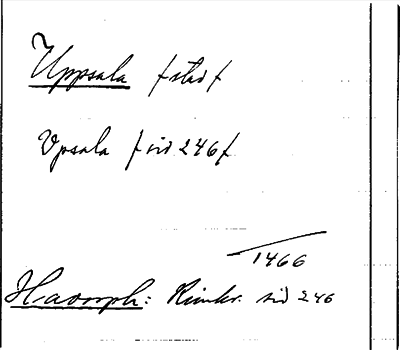 Uppsala /stad/
Vpsala /sid 246/
1466
Haorrph: Rimkr. sid 246